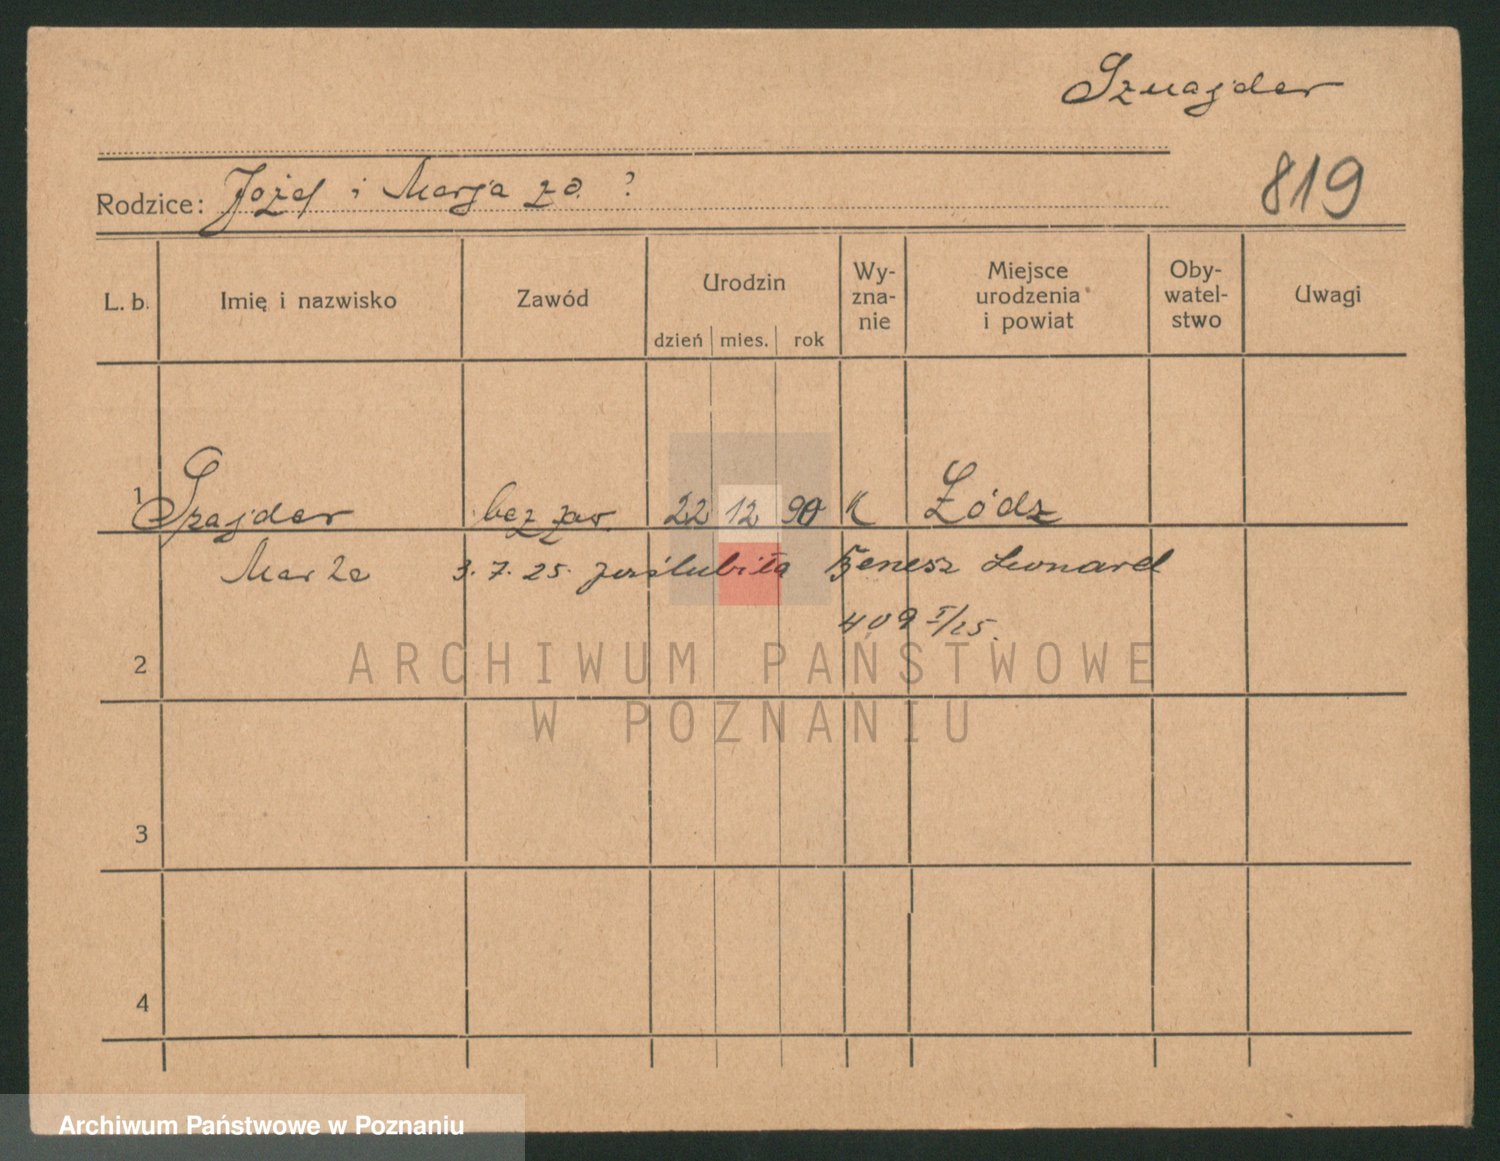 Sznajder
819
Rodzice: Józef i Marja zd. ?
L. b. Imię i nazwisko Zawód Urodzin dzień mies. rok Wy-zna-nie Miejsce urodzenia i powiat Oby-watel-stwo Uwagi
1 Szajder bez zaw. 22 12 90 K Łódz
3. 7. 25. poślubiła Benesz Leonard
409 I/25.
2
ARCHIWUM PAŃSTWOWE
W POZNANIU
3
4
Archiwum Państwowe w Poznaniu